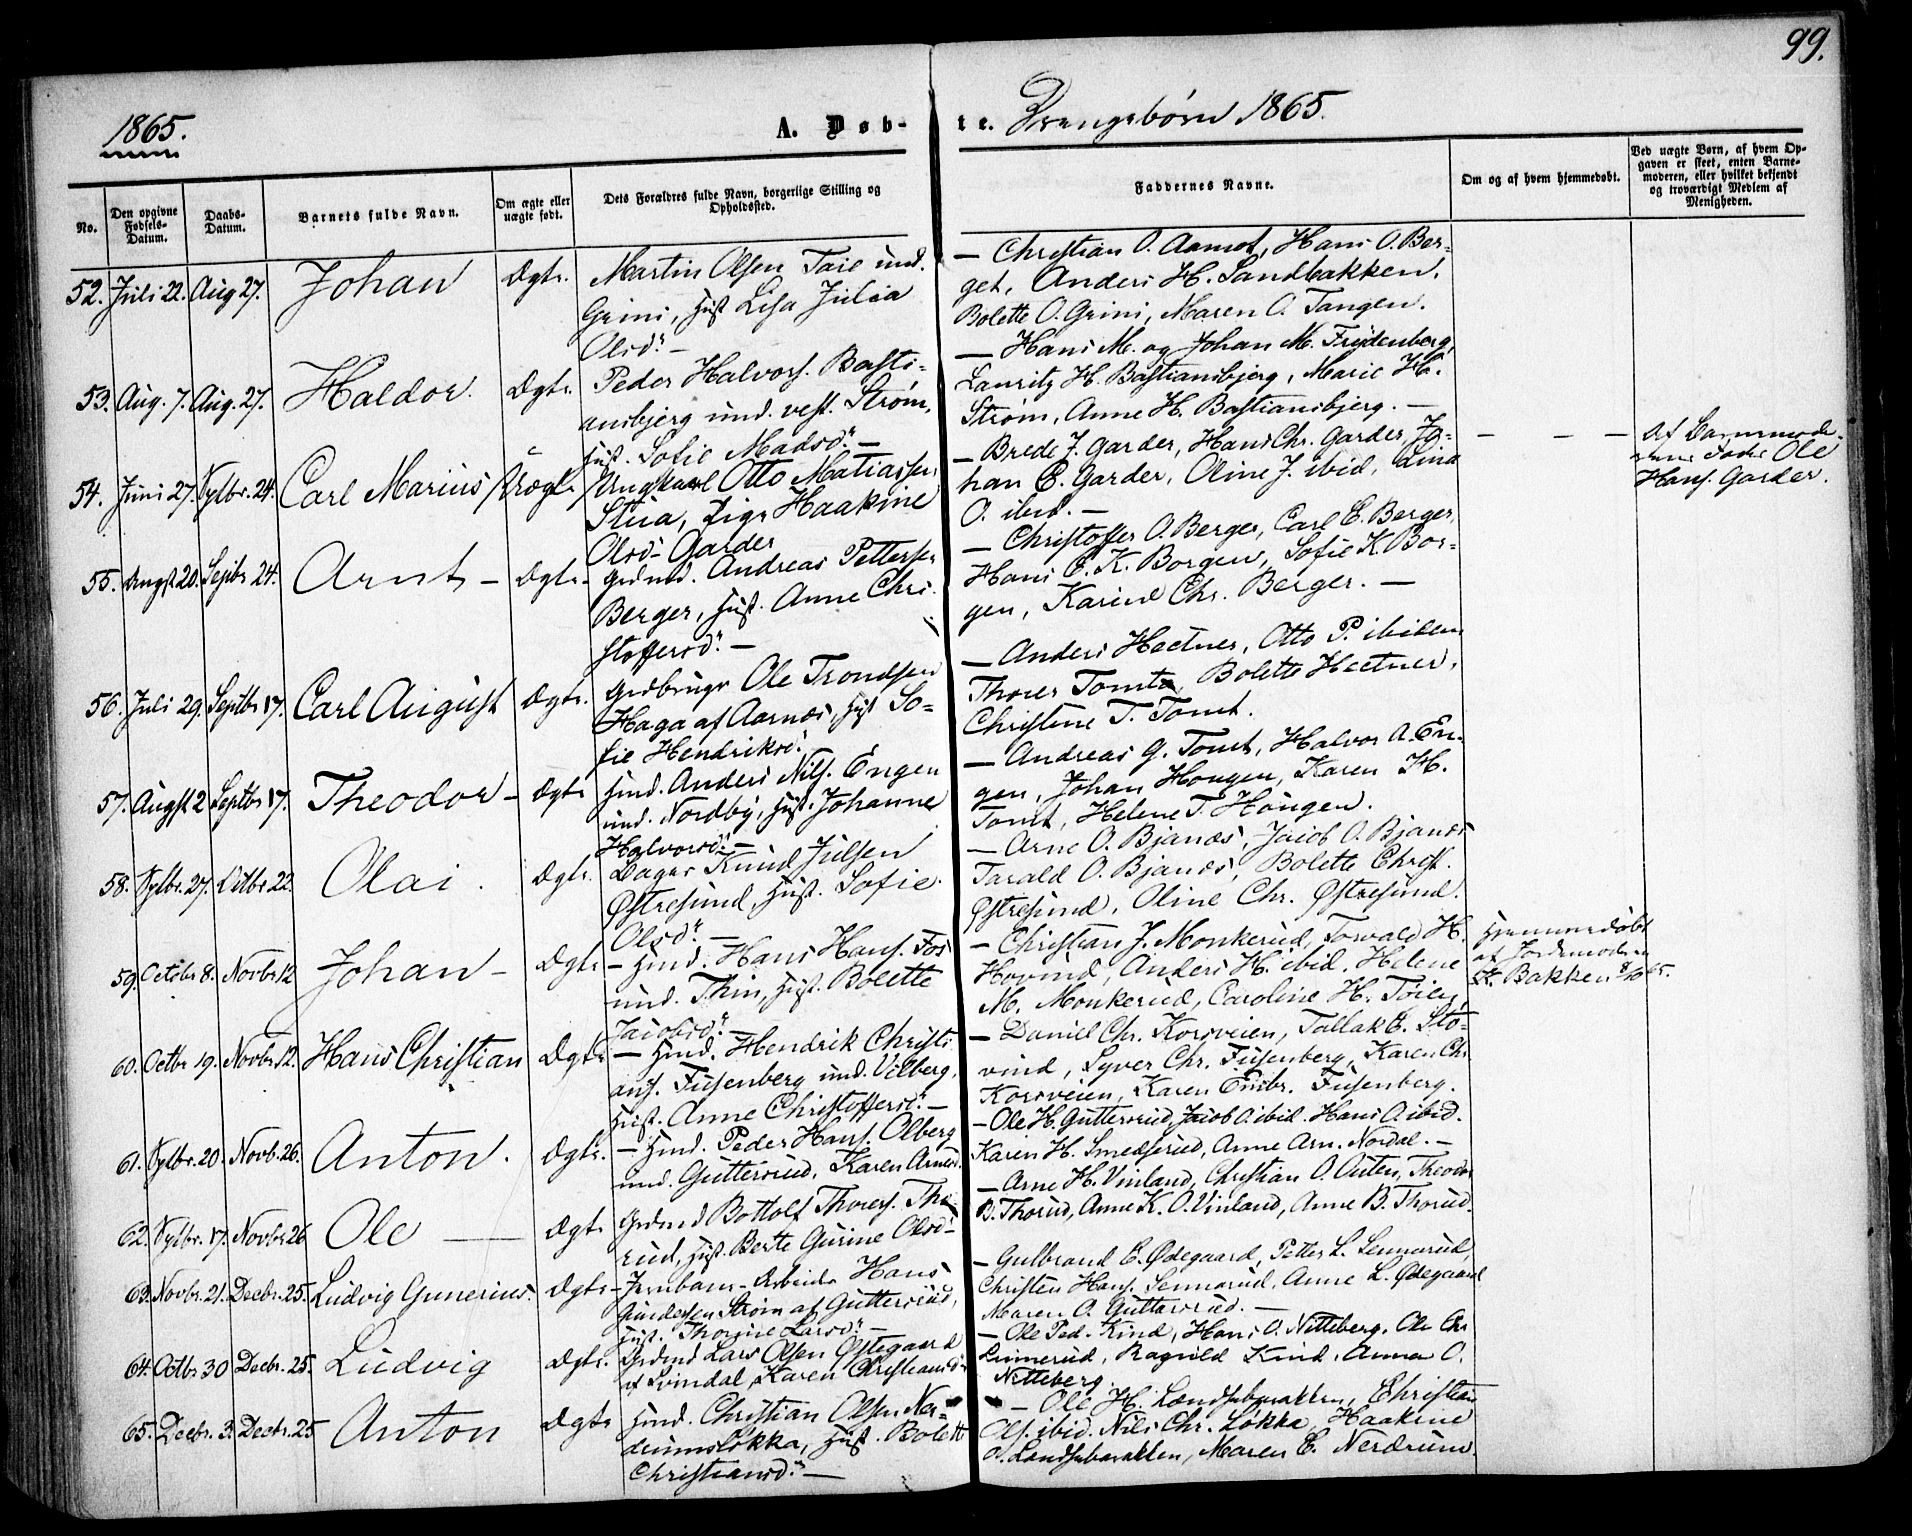 99.
1865.
A. Døb-
te. Drengebørn 1865.
No.
Den opgivne Fødsels-Datum.
Daabs-Datum.
Barnets fulde Navn.
Om ægte eller uægte født.
Dets Forældres fulde Navn, borgerlige Stilling og Opholdssted.
Faddernes Navne.
Om og af hvem hjemmedøbt.
Ved uægte Børn, af hvem Opgaven er skeet, enten Barnemoderen, eller hvilket bekjendt og troværdigt Medlem af Menigheden.
52. Juli 22. Aug 27. Johan Ægte.
Martin Olsen Taie und.
Grini, Hust Lisa Julia
Olsd. —
— Christian O. Aamot, Hans O. Ber-
get, Anders H. Sandbakken,
Bolette O. Grini, Maren O. Tangen.
53. Aug. 7. Aug. 27. Haldor. Ægte.
Peder Halvors. Basti-
ansbjerg und. vest. Strøm,
Hust. Sofie Madsd. —
— Hans M. og Johan M. Frydenberg,
Lauritz H. Bastiansbjerg, Marie H.
Strøm, Anne H. Bastiansbjerg. —
54. Juni 27. Sptbr. 24. Carl Marius Uægte
Ungkarl Otto Matiassen
Stua, Pige Haakine
Olsd. Garder
— Brede J. Garder, Hans Chr. Garder, Jo-
han E. Garder, Oline J. ibid, Lina
O. ibid. —
— — —
Af Barnemode-
rens Fader Ole
Hans. Garder.
55. Augst 20. Septbr 24. Arnt — Ægte.
Grdmd. Andreas Pettersen
Berger, Hust. Anne Chri-
stoffersd. —
— Christoffer O. Berger, Carl E. Berger,
Hans E. K. Borgen, Sofie K. Bor-
gen, Karine Chr. Berger. —
56. Juli 29. Septbr 17. Carl August Ægte.
Grdbrugr Ole Trondsen
Haga af Aarnæs, Hust So-
fie Hendriksd.
— Anders Hectner, Otto P. ibidem,
Thorer Tomt, Bolette Hectner,
Christine T. Tomt.
57. Augst 2 Septbr 17. Theodor — Ægte
Hmd. Anders Nils. Engen
und. Nordby, Hust. Johanne
Halvorsd. —
— Andreas G. Tomt, Halvor A. En-
gen, Johan Hougen, Karen H.
Tomt, Helene T. Hougen.
58. Sptbr. 27. Octbr 22. Olai. Ægte.
Bager Knud Julsen
Østresund, Hust. Sofie
Olsd. —
— Arne O. Bjanæs, Jacob O. Bjanæs
Tarald O. Bjanæs, Bolette Christ.
Østresund, Oline Chr. Østresund.
59. Octbr 8. Novbr 12 Johan — Ægte
— Hmd. Hans Hans. Fos
und. Thin, Hust. Bolette
Jacobsd. —
— Christian J. Monkerud, Torvald H.
Hovind, Anders H. ibid. Helene
M. Monkerud, Caroline H. Tøien,
Hjemmedøbt
af Jordemoderen
K. Bakken 8/10 65.
60. Octbr 19. Novbr 12. Hans Christian Ægte
— Hmd. Hendrik Christi-
ans. Fusenberg und. Vilberg,
Hust. Anne Christoffersd. —
— Daniel Chr. Korsveien, Tallak E. Sto-
vind, Syver Chr. Fusenberg, Karen Chr.
Korsveien, Karen Embr. Fusenberg.
61. Sptbr. 20. Novb. 26. Anton. Ægte.
— Hmd. Peder Hans. Olberg
und. Guttersrud, Karen Arnesd.
— Ole H. Guttersrud, Jacob O. ibid. Hans O. ibid.
Karen H. Smedsrud, Anne Arn. Nordal. —
62. Sptbr. 17. Novbr 26 Ole — Ægte
Grdmd Bottolf Thores. Tho-
rud, Hust. Berte Gurine Olsd. —
— Arne H. Vinland, Christian O. Outen, Theodor
B. Thorud, Anne K. O. Vinland, Anne B. Thorud.
63. Novbr. 21. Decbr. 25. Ludvig Gunerius. Ægte
— Jernbane-Arbeider Hans
Gundersen Strøm af Guttersrud,
Hust. Thorine Larsd. —
— Gulbrand E. Ødegaard, Petter L. Sennerud,
Christen Hans. Sennerud, Anne L. Ødegaard
Maren O. Guttersrud. —
64. Octbr. 30 Decbr. 25. Ludvig Ægte.
Grdmd Lars Olsen Østegaard
af Svindal, Karen Christiansd.
— Ole Ped. Kind, Hans O. Nitteberg, Ole Chr
Linnerud, Ragnild Kind, Anna O.
Nitteberg.
65. Decbr. 3. Decbr. 25 Anton Ægte
Hmd. Christian Olsen Ner-
drumsløkka, Hust. Bolett
Christiansd. —
— Ole H. Landsebarakken, Christian
Ols. ibid. Nils Chr. Løkka, Haakine
O. Landsebarakken, Maren E. Nerdrum.